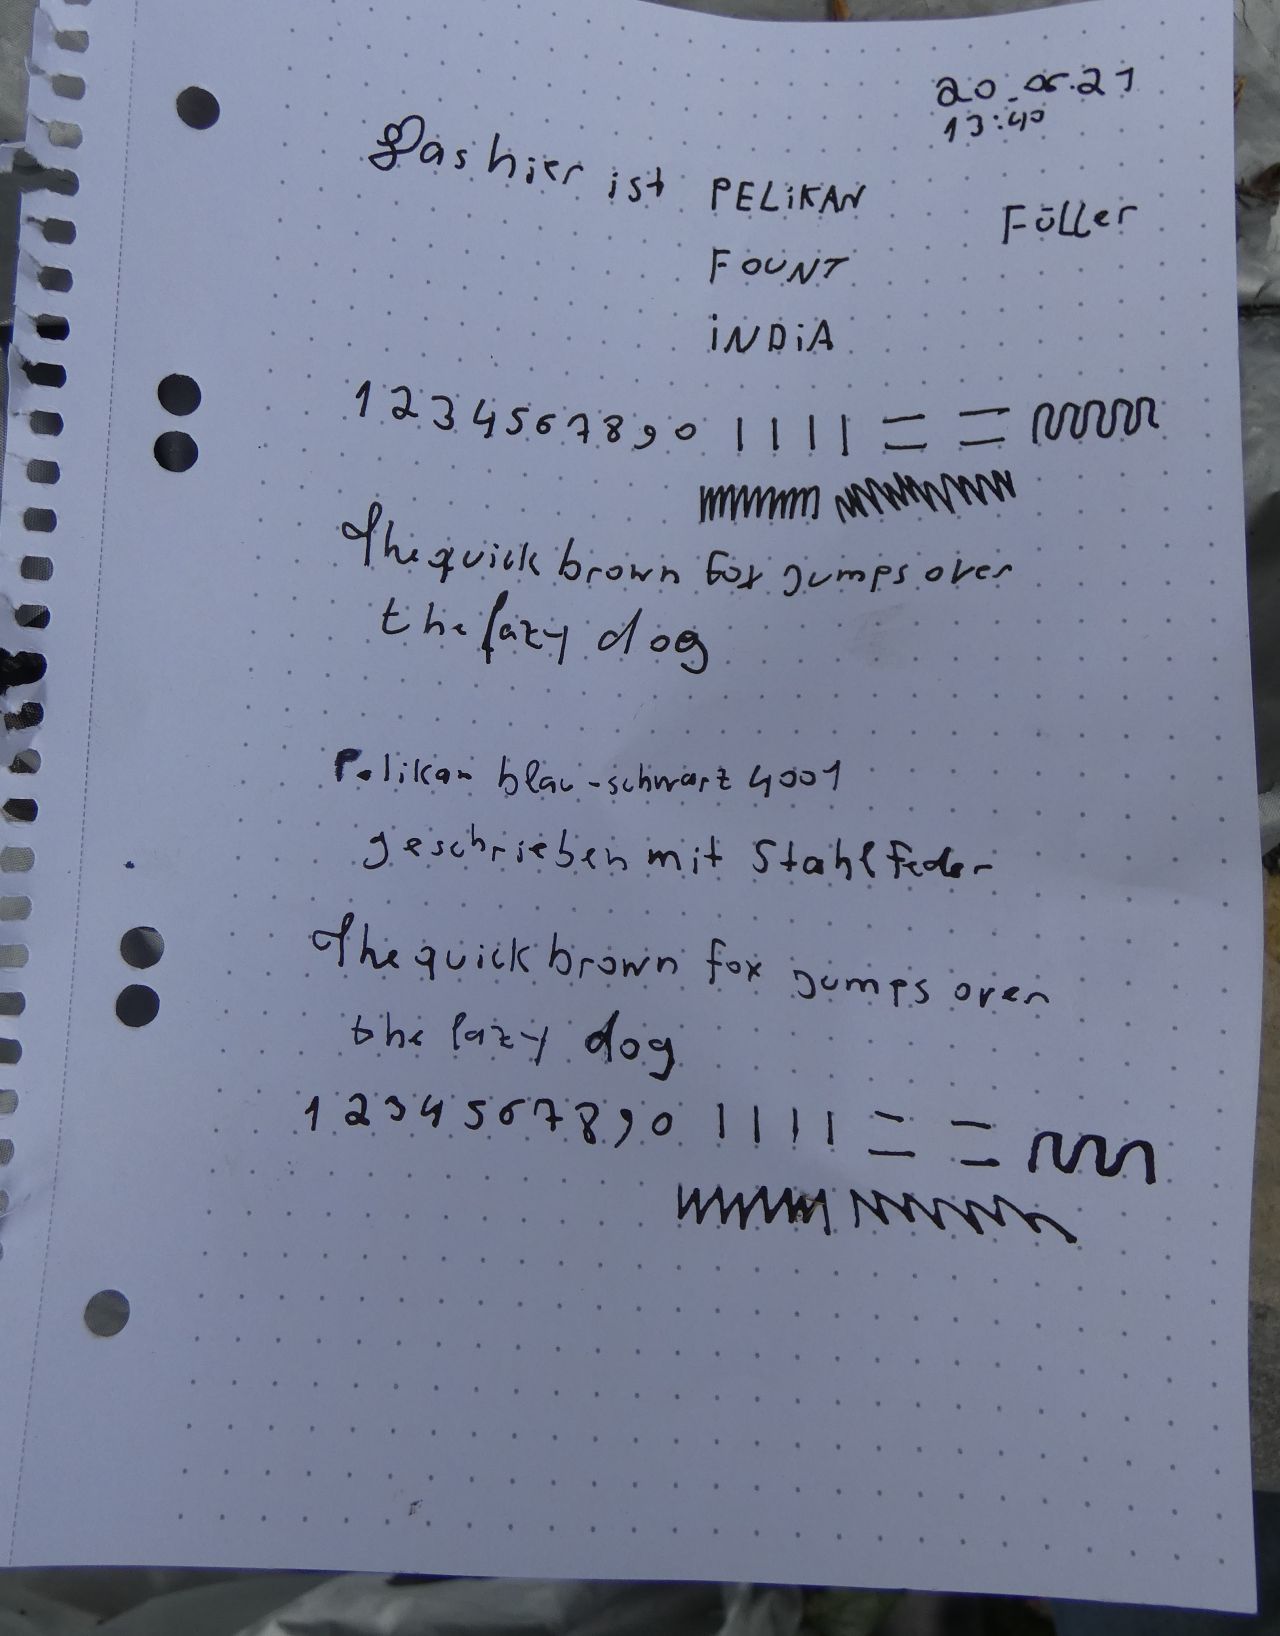 20.05.21
13:40
Das hier ist PELiKAN
Füller
FOUNT
iNDiA
1 2 3 4 5 6 7 8 9 0
The quick brown fox jumps over
the lazy dog
Pelikan blau-schwarz 4001
geschrieben mit Stahlfeder
The quick brown fox jumps over
the lazy dog
1 2 3 4 5 6 7 8 9 0